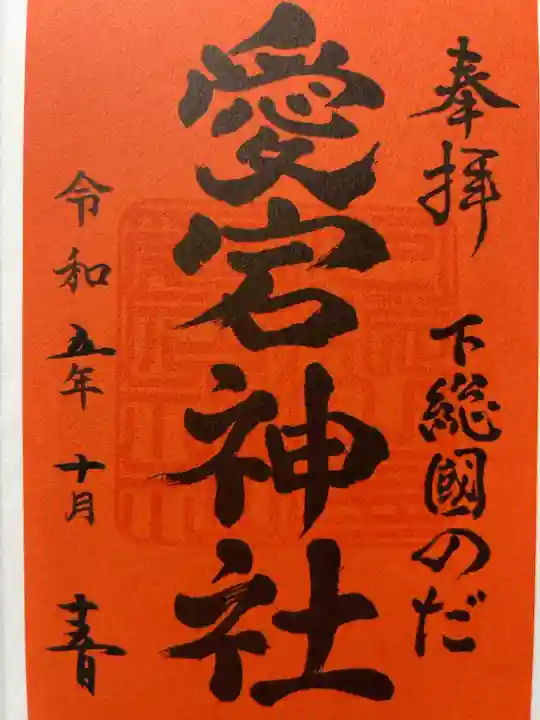 奉拝
下総國のだ
愛宕神社
令和五年十月十五日